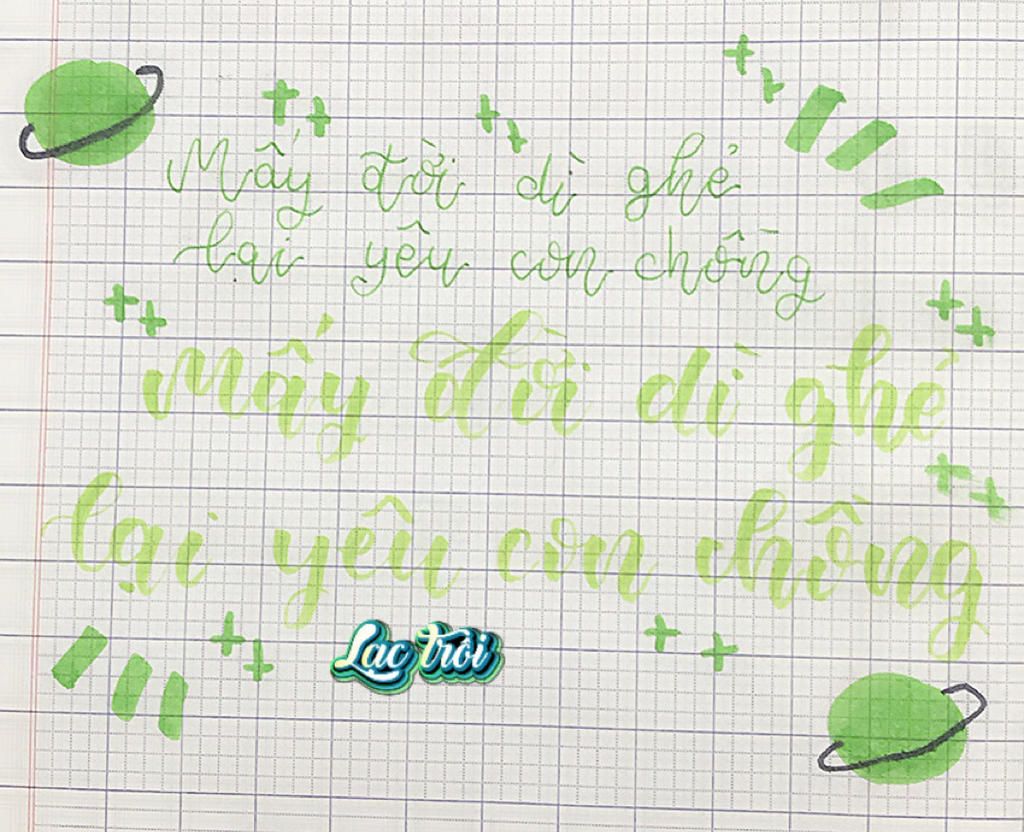 Mấy đời dì ghẻ
lại yêu con chồng
Mấy đời dì ghẻ
lại yêu con chồng
Lạc trôi